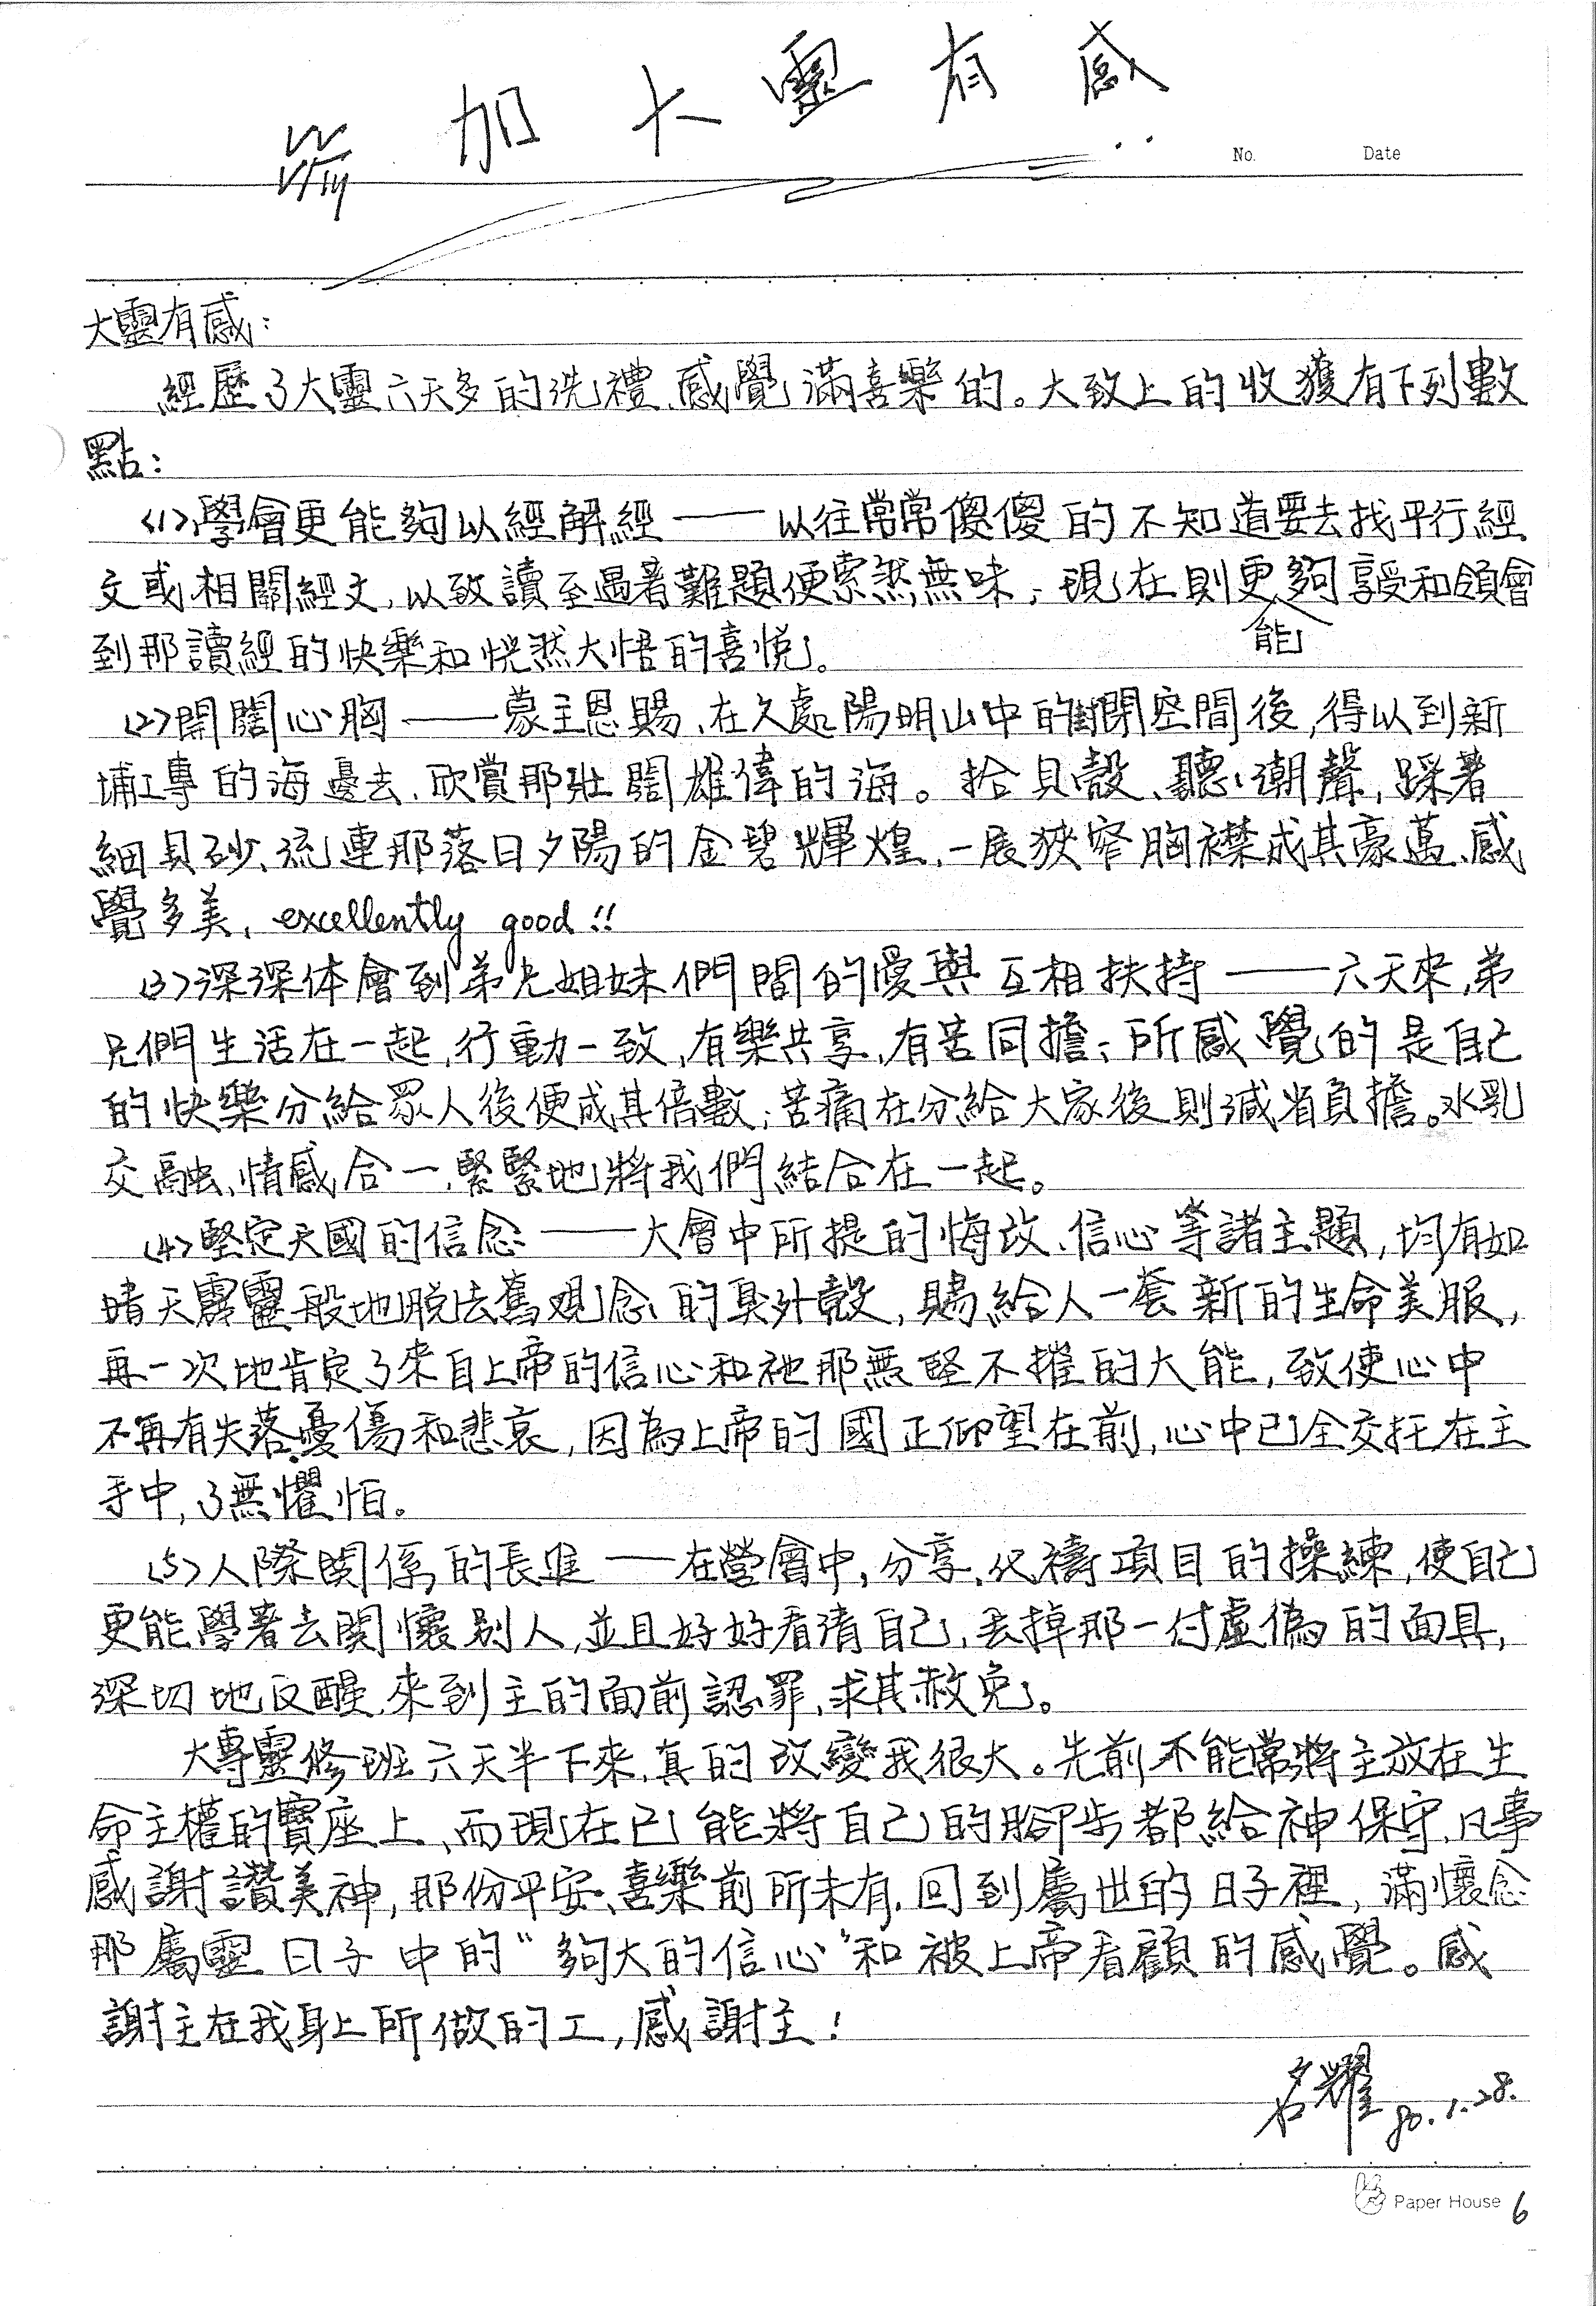 參加大靈有感
No. Date
大靈有感:
經歷了大靈六天多的洗禮、感覺滿喜樂的。大致上的收獲有下列數
點:
(1)學會更能夠以經解經——以往常常傻傻的不知道要去找平行經
文或相關經文,以致讀至遇著難題便索然無味;現在則更能夠享受和領會
到那讀經的快樂和恍然大悟的喜悅。
(2)開闊心胸——蒙主恩賜、在久處陽明山中的封閉空間後,得以到新
埔工專的海邊去、欣賞那壯闊雄偉的海。拾貝殼、聽潮聲,踩著
細貝砂、流連那落日夕陽的金碧輝煌、一展狹窄胸襟成其豪邁、感
覺多美, excellently good!!
(3)深深体會到弟兄姐妹們間的愛與互相扶持——六天來,弟
兄們生活在一起,行動一致,有樂共享,有苦同擔;所感覺的是自己
的快樂分給眾人後便成其倍數;苦痛在分給大家後則減省負擔。水乳
交融、情感合一、緊緊地將我們結合在一起。
(4)堅定天國的信念——大會中所提的悔改、信心等諸主題,均有如
晴天霹靂般地脫去舊觀念的臭外殼,賜給人一套新的生命美服,
再一次地肯定了來自上帝的信心和祂那無堅不摧的大能,致使心中
不再有失落憂傷和悲哀,因為上帝的國正仰望在前,心中已全交托在主
手中,了無懼怕。
(5)人際関係的長進——在營會中,分享、代禱項目的操練,使自己
更能學著去関懷別人,並且好好看清自己、丟掉那一付虛偽的面具,
深切地反醒、來到主的面前認罪、求其赦免。
大專靈修班六天半下來、真的改變我很大。先前不能常將主放在生
命主權的寶座上、而現在已能將自己的腳步都給神保守、凡事
感謝讚美神,那份平安、喜樂前所未有.回到屬世的日子裡,滿懷念
那屬靈日子中的“夠大的信心”和被上帝看顧的感覺。感
謝主在我身上所做的工,感謝主!
名耀 80.1.28.
Paper House 6